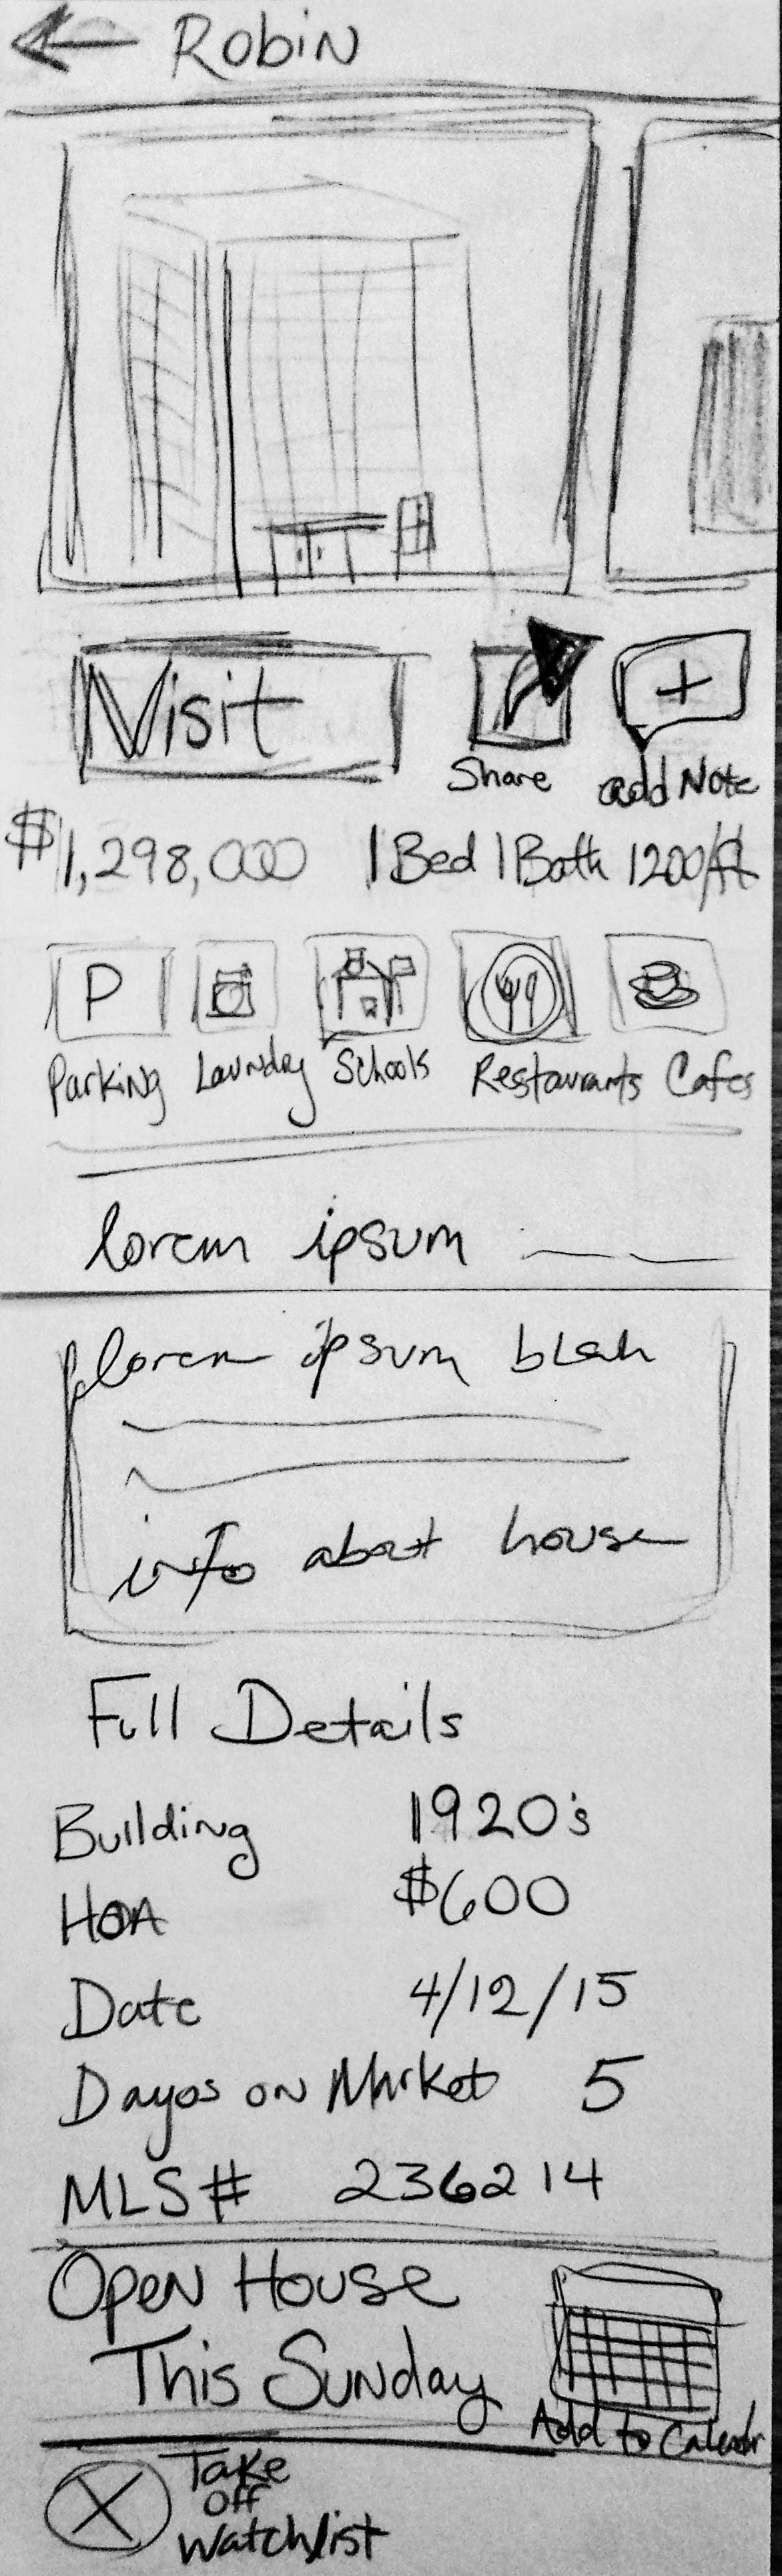 Robin
Visit
Share
add Note
$1,298,000 1 Bed 1 Bath 1200/ft
P
Parking Laundry Schools Restaurants Cafes
lorem ipsum
lorem ipsum blah
info about house
Full Details
Building 1920's
HOA $600
Date 4/12/15
Dayos on Market 5
MLS# 236214
Open House
This Sunday
Add to Calendr
Take
off
Watchlist